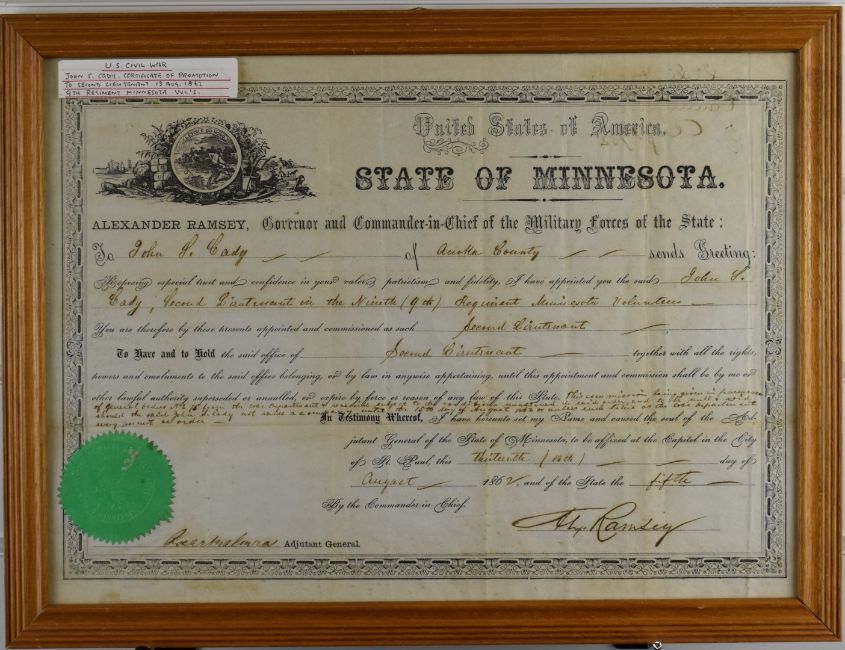 U.S. CIVIL WAR
JOHN S. CADY. CERTIFICATE OF PROMOTION
TO SECOND LIEUTENANT 13 AUG. 1862
9TH REGIMENT MINNESOTA VOL'S.
United States of America.
STATE OF MINNESOTA.
ALEXANDER RAMSEY, Governor and Commander-in-Chief of the Military Forces of the State:
To John S. Cady of Anoka County sends Greeting:
Reposing especial trust and confidence in your valor, patriotism and fidelity, I have appointed you the said John S.
Cady, Second Lieutenant in the Nineth (9th) Regiment Minnesota Volunteers
You are therefore by these presents appointed and commissioned as such Second Lieutenant
To Have and to Hold the said office of Second Lieutenant together with all the rights,
powers and emoluments to the said office belonging, or by law in anywise appertaining, until this appointment and commission shall be by me or
other lawful authority superseded or annulled, or expire by force or reason of any law of this State. This commission being given in pursuance
of General orders No. 75 from the war Department
should the said John S. Cady not raise a company until the 15th day of August 1862 or unless such
In Testimony Whereof, I have hereunto set my Name and caused the seal of the Ad-
jutant General of the State of Minnesota, to be affixed at the Capitol in the City
of St. Paul, this thirteenth (13th) day of
August 1862, and of the State the fifth
By the Commander-in-Chief.
Alex Ramsey
Oscar Malmros Adjutant General.